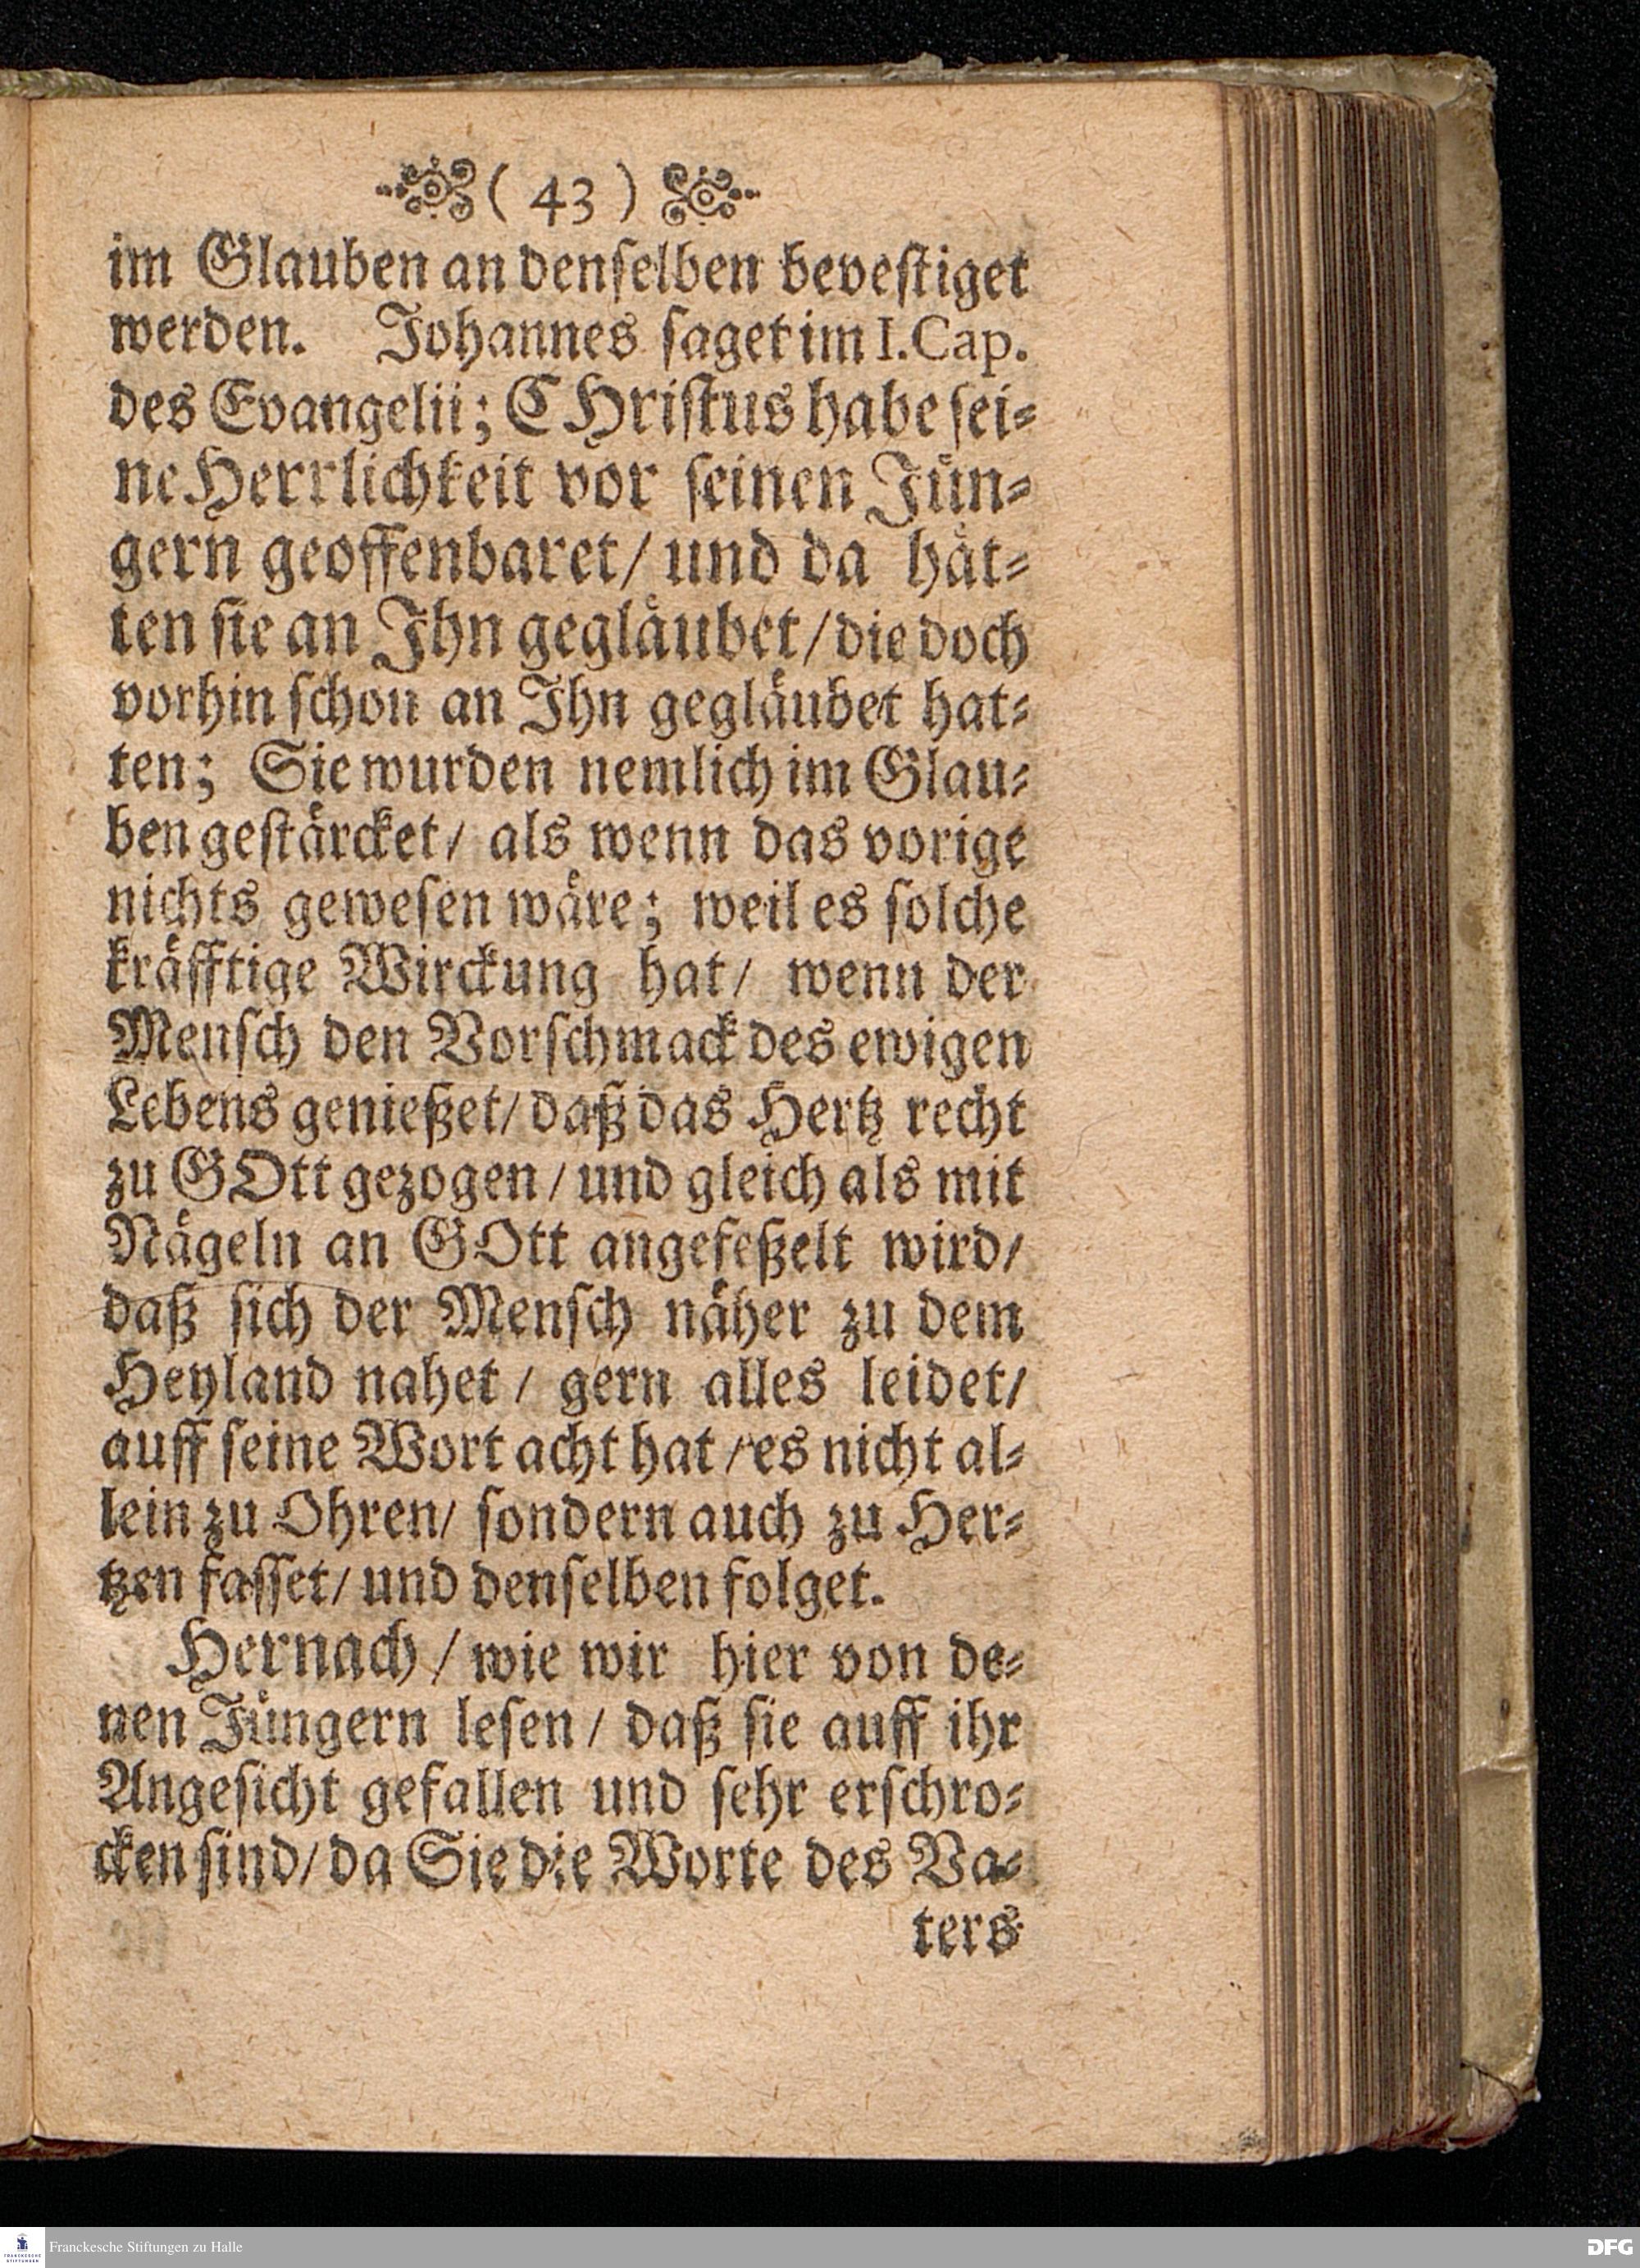 ( 43 )
im Glauben an denſelben beveſtiget
werden. Johannes ſaget im I. Cap.
des Evangelii; CHriſtus habe ſei⸗
ne Herrlichkeit vor ſeinen Juͤn⸗
gern geoffenbaret/ und da haͤt⸗
ten ſie an Jhn geglaͤubet/ die doch
vorhin ſchon an Jhn geglaͤubet hat⸗
ten; Sie wurden nemlich im Glau⸗
ben geſtaͤrcket/ als wenn das vorige
nichts geweſen waͤre; weil es ſolche
kraͤfftige Wirckung hat/ wenn der
Menſch den Vorſchmack des ewigen
Lebens genießet/ daß das Hertz recht
zu GOtt gezogen / und gleich als mit
Naͤgeln an GOtt angefeßelt wird/
daß ſich der Menſch naͤher zu dem
Heyland nahet / gern alles leidet/
auff ſeine Wort acht hat / es nicht al⸗
lein zu Ohren/ ſondern auch zu Her⸗
tzen faſſet/ und denſelben folget.
Hernach / wie wir hier von de⸗
nen Juͤngern leſen / daß ſie auff ihr
Angeſicht gefallen und ſehr erſchro⸗
cken ſind/ da Sie die Worte des Va⸗
ters
Franckesche Stiftungen zu Halle
DFG